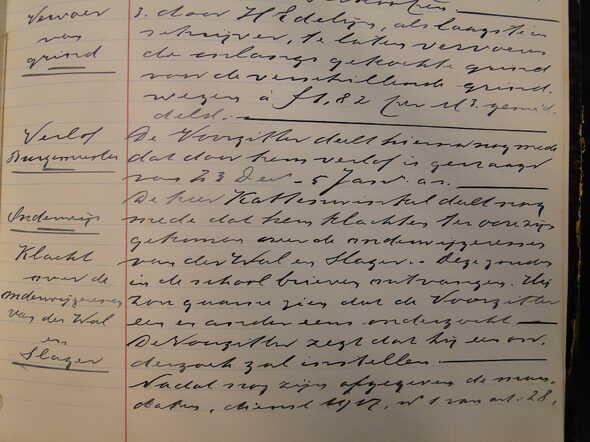 Vervoer
van
grind
3. door H Edelijn, als laagste in-
schrijver, te laten vervoeren
de onlangs gekochte grind
voor de verschillende grind-
wegen à f 1,82 per M3. gemid-
deld.
Verlof
Burgemeester
De Voorzitter deelt hierna nog mede
dat door hem verlof is gevraagd
van 23 Dec - 5 Jan a.s.
Onderwijs
De heer Kattenwinkel deelt nog
mede dat hem klachten ter oore zijn
gekomen over de onderwijzeressen
Klacht
over de
onderwijzeressen
van der Wal
en
Slager
van der Wal en Slager. Deze zouden
in de school brieven ontvangen. Hij
zou gaarne zien dat de Voorzitter
een en ander eens onderzocht
De Voorzitter zegt dat hij een on-
derzoek zal instellen.
Nadat nog zijn afgegeven de man-
daten, dienst 1927, no 1 van art. 28,